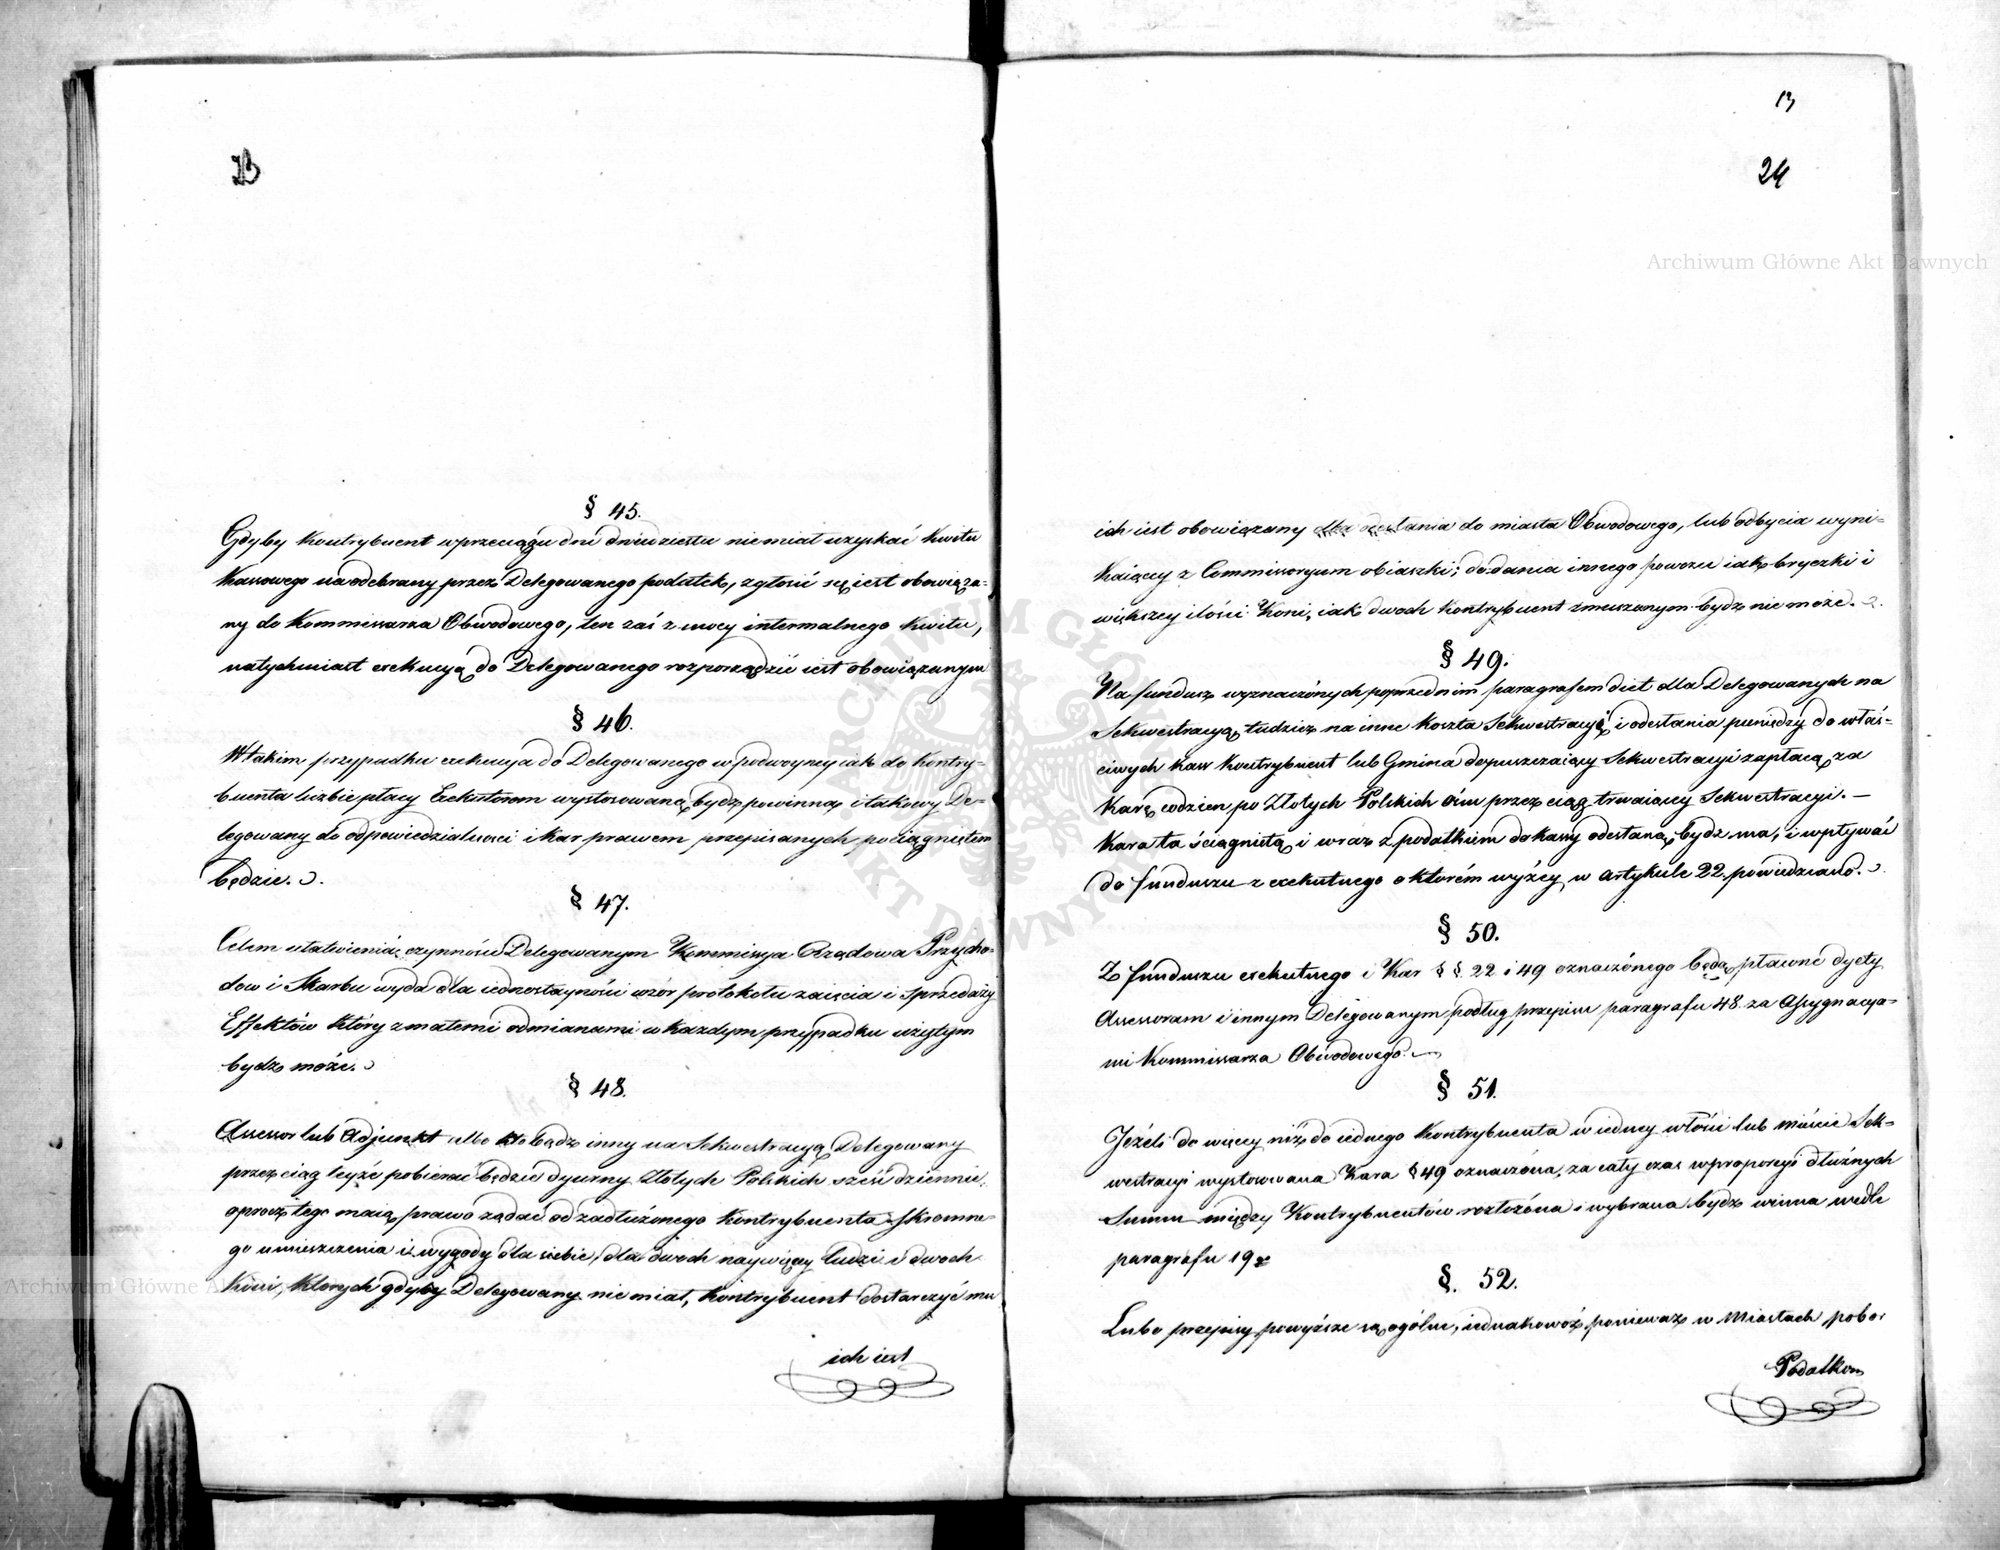 23
§ 45.
Gdyby Kontrybuent w przeciągu dni dwudziestu niemiał uzyskać Kwitu
Kassowego na odebrany przez Delegowanego podatek, zgłosić się iest obowiąza-
ny do Kommissarza Obwodowego, ten zaś z mocy intermalnego Kwitu,
natychmiast exekucyą do Delegowanego rozporządzić iest obowiązanym
§ 46.
W takim przypadku exekucya do Delegowanego w podwoyney iak do Kontry-
buenta liczbie płacy Exekutorom wystosowaną bydz powinna, i takowy De-
legowany do odpowiedzialności i kar prawem przepisanych pociągniętem
będzie.
§ 47.
Celem ułatwienia czynności Delegowanym Kommissya Rządowa Przycho-
dow i Skarbu wyda dla iednostayności wzór protokołu zaięcia i sprzedaży
Effektów który z małemi odmianami w każdym przypadku użytym
bydz może.
§ 48.
Assessor lub Adjunkt albo kto bądz inny na Sekwestracyą Delegowany
przez ciąg teyże pobierać będzie dyurny Złotych Polskich sześć dziennie,
oprocz tego maią prawo żądać od zadłużonego Kontrybuenta skromne-
go umieszczenia i wygody dla siebie, dla dwoch naywięcy ludzi i dwoch
Koni, ktorych gdyby Delegowany nie miał, Kontrybuent dostarczyć mu
ich iest
13
24
Archiwum Główne Akt Dawnych
ich iest obowiązany dla odesłania do miasta Obwodowego, lub odbycia wyni-
kaiący z Commissoryum obiazki; do dania innego powozu iak bryczki i
większey ilości Koni, iak dwoch Kontrybuent zmuszanym bydz nie może.
§ 49.
Na fundusz wyznaczonych poprzednim paragrafem diet dla Delegowanych na
Sekwestracyą, tudzież na inne koszta Sekwestracyi i odesłania pieniędzy do właś-
ciwych Kass Kontrybuent lub Gmina dopuszczaiący Sekwestracyi zapłacą za
Karę codzien po Złotych Polskich ośm przez ciąg trwaiący Sekwestracyi. —
Kara ta ściągnietą i wraz z podatkiem do kassy odesłaną bydz ma, i wpływać
do funduszu z exekutnego o którém wyżey w artykule 22. powiedziano.
§ 50.
Z funduszu exekutnego i Kar §§ 22 i 49 oznaczónego będą płacone dyety
Assessorom i innym Delegowanym podług przepisu paragrafu 48. za Assygnacya-
mi Kommissarza Obwodowego.
§ 51.
Jeżeli do więcy niż do iednego Kontrybuenta w iedney włości lub mieście Sek-
westracyi wystosowana Kara § 49 oznaczóna, za cały czas w proporcyi dłużnych
Summ między Kontrybuentów rozłożóna i wybrana bydz winna wedle
paragrafu 19
§. 52.
Lubo przepisy powyższe są ogólne, iednakowoż ponieważ w Miastach pobor
Podatkow
Archiwum Główne
ARCHIWUM GŁÓWNE
AKT DAWNYCH